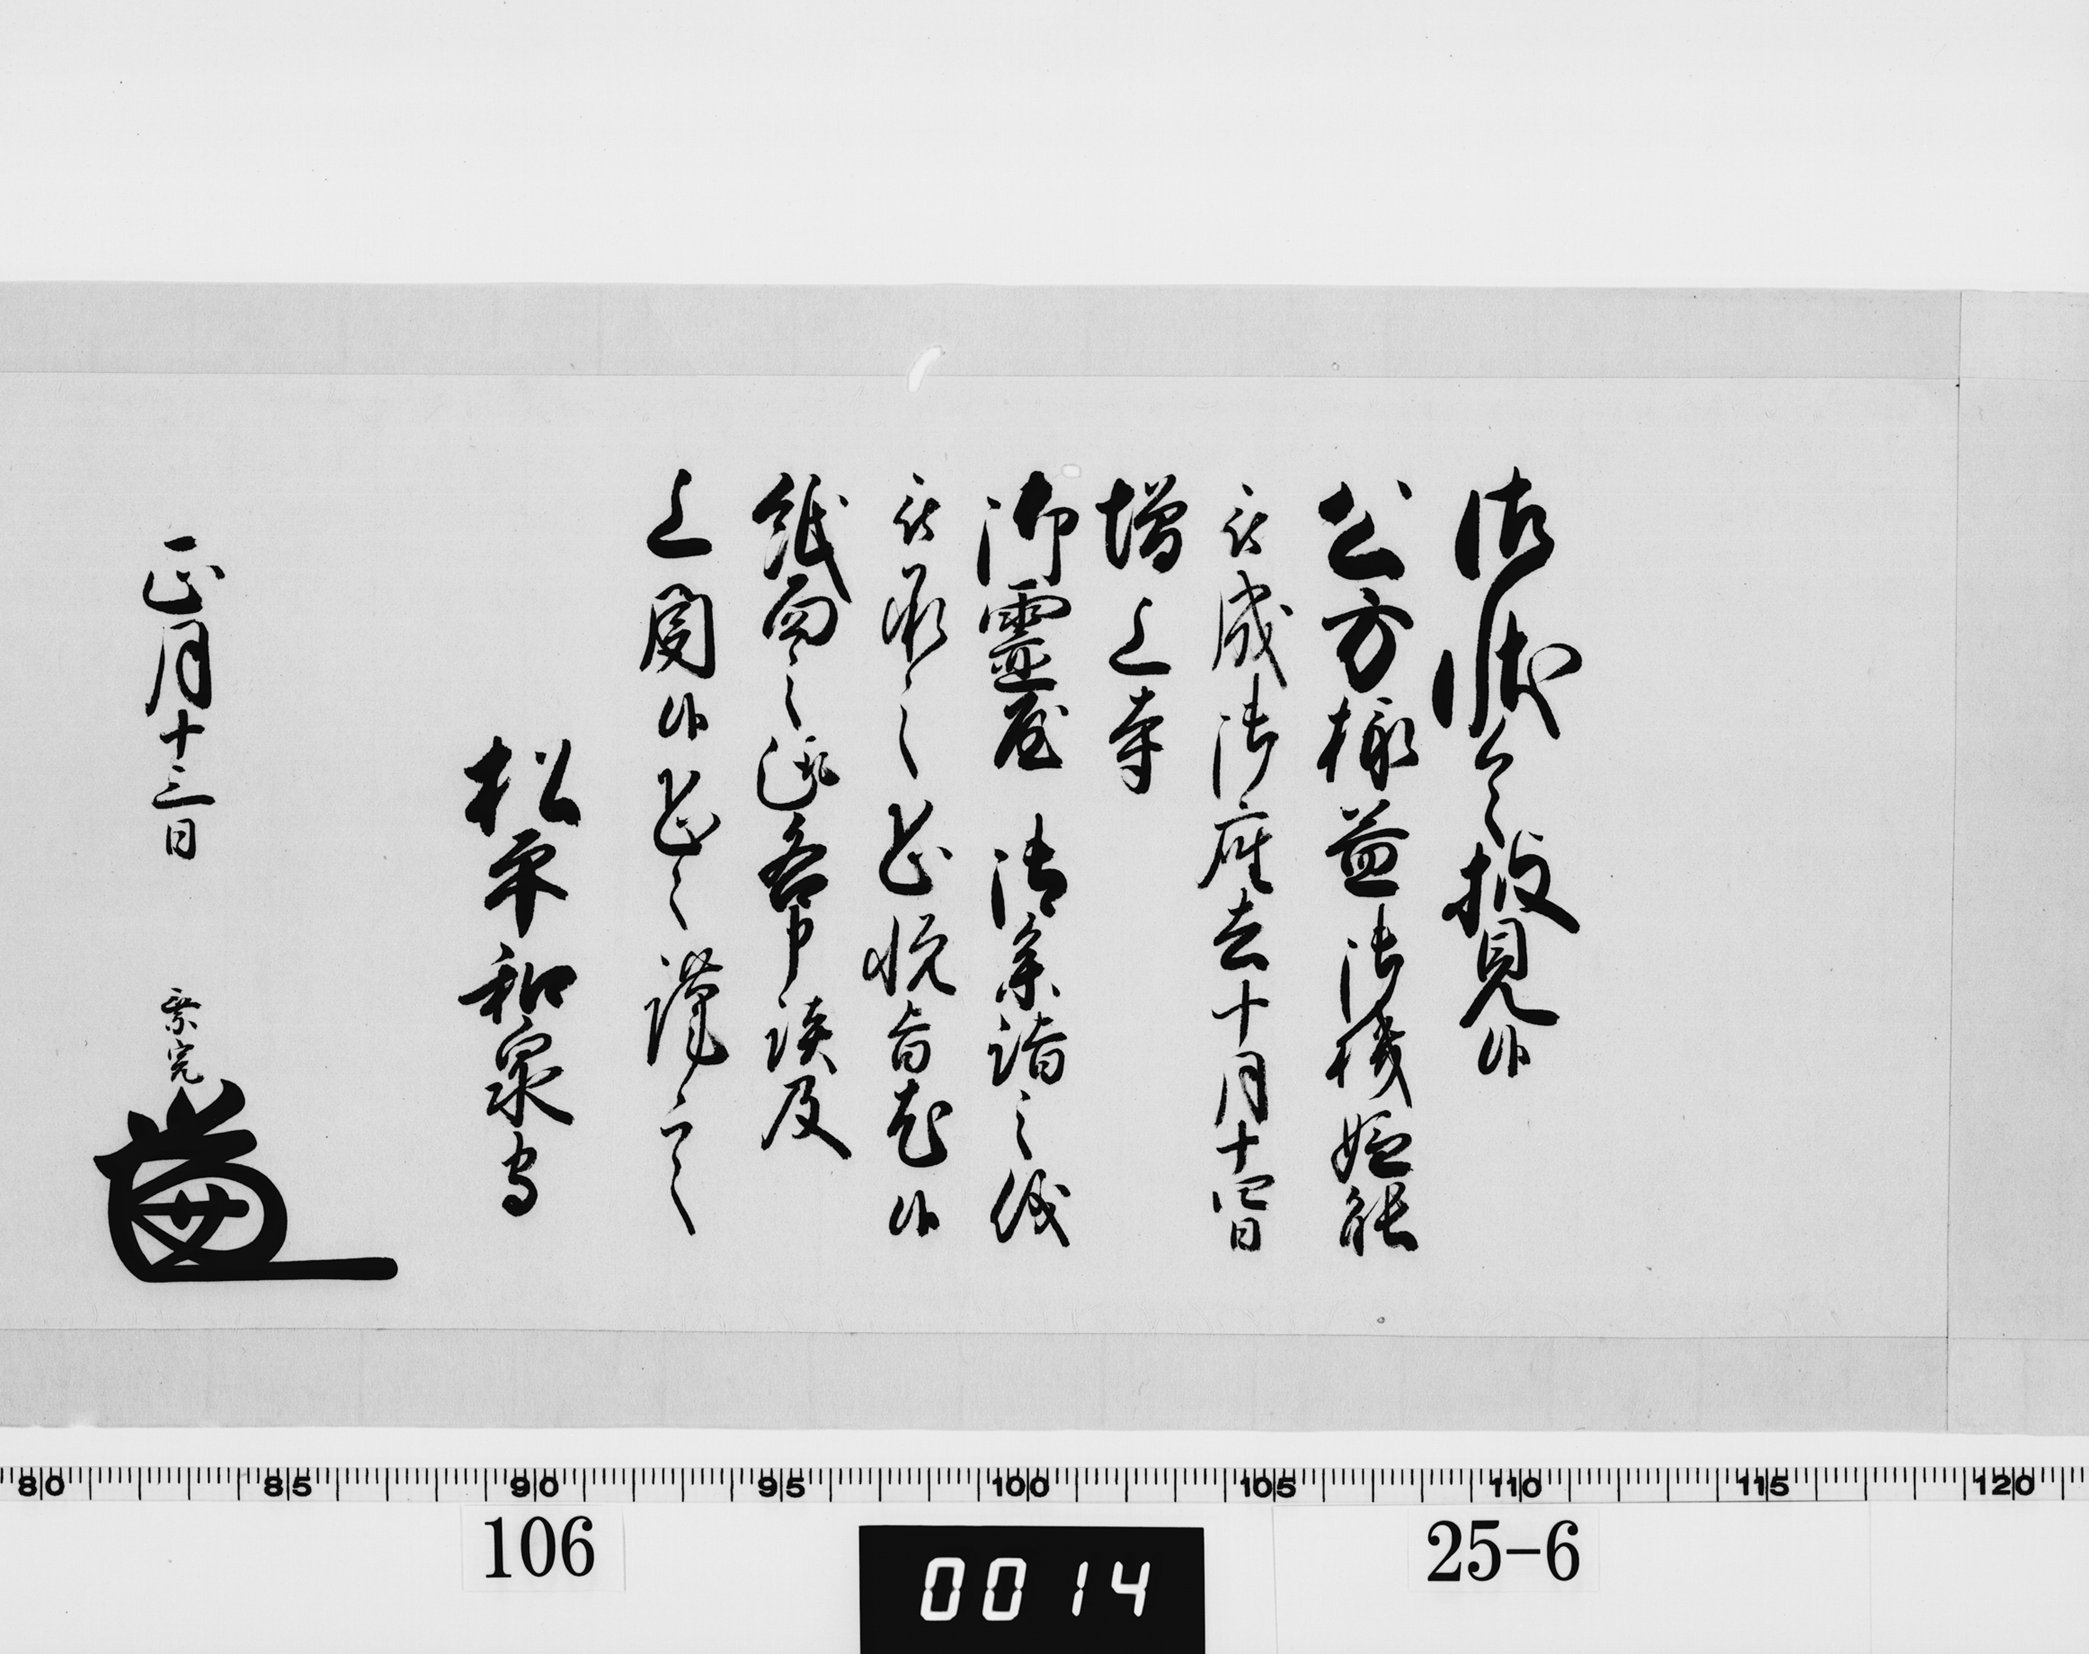 御状令披見候
公方様益御機嫌能
被成御座去十月十四日
増上寺
御霊屋 御参詣之儀
被承之恐悦旨尤候
紙面之趣各申談及
上聞候恐々謹言
松平和泉守
正月十三日 乗完
80 85 90 95 100 105 110 115 120
106 0014 25-6